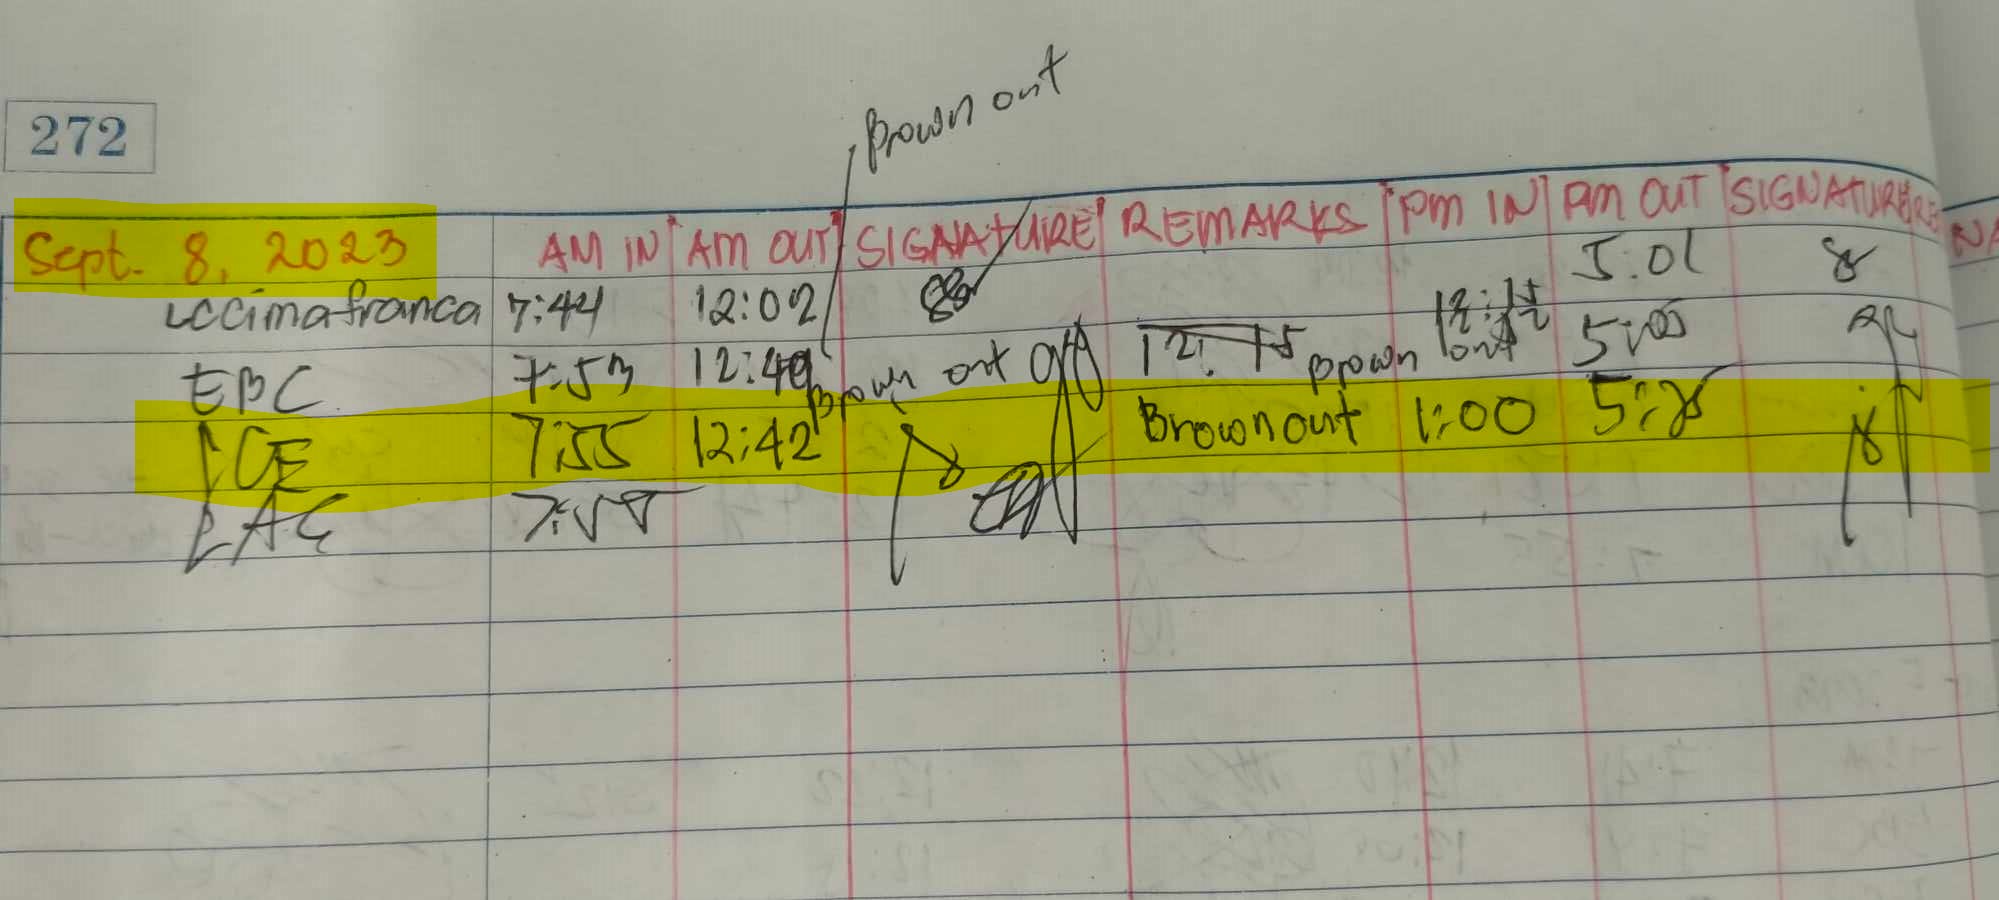 Brown out
272
Sept. 8, 2023 AM IN AM OUT SIGNATURE REMARKS PM IN PM OUT SIGNATURE
LCCimafranca 7:44 12:02 5:01
EBC 7:53 12:49 Brown out 12:15 Brown out 12:15 5:00
7:55 12:42 Brownout 1:00
LAC 7:55